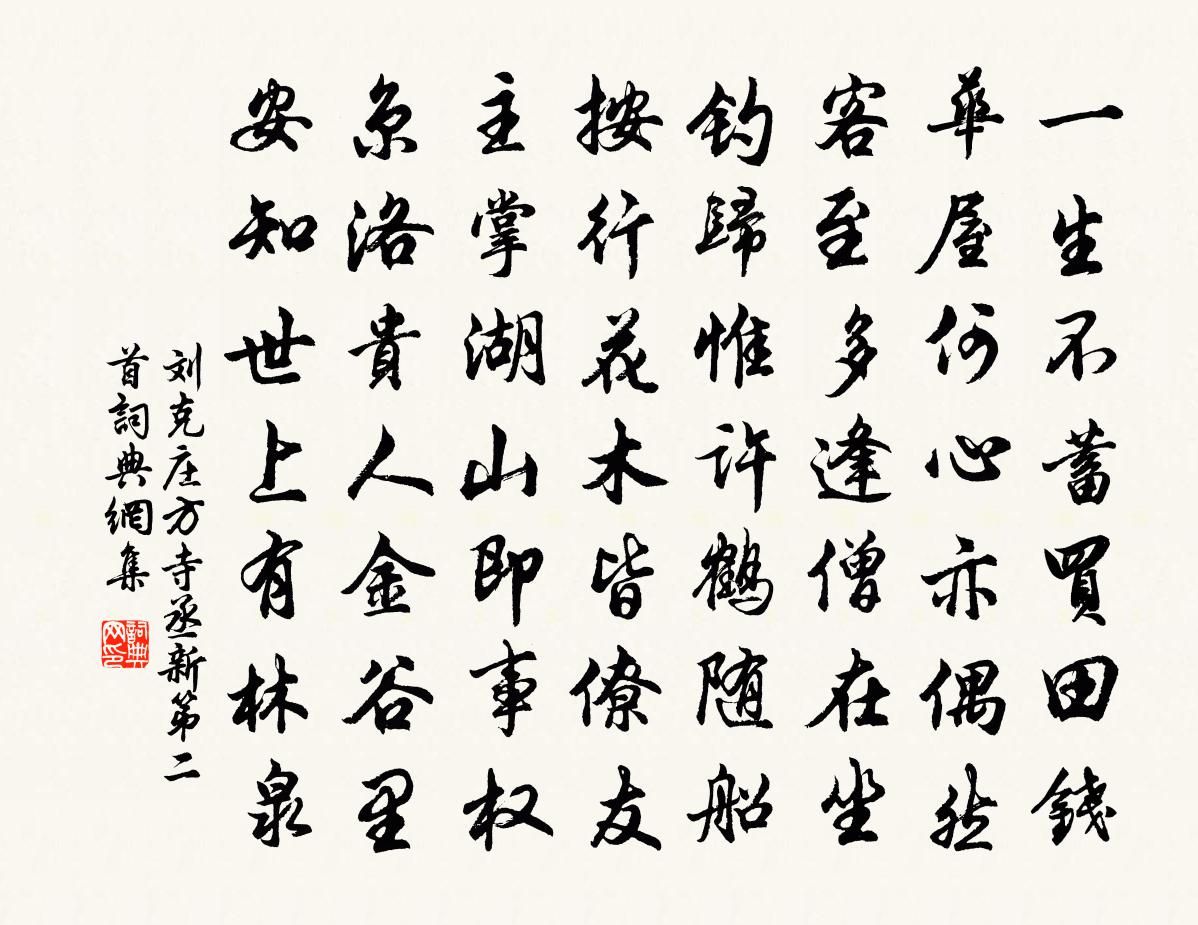 一生不蓄買田錢
華屋何心亦偶然
客至多逢僧在坐
釣歸惟許鶴随船
按行花木皆僚友
主掌湖山即事权
京洛貴人金谷里
安知世上有林泉
刘克庄方寺丞新第二
首詞典網集
詞典网印